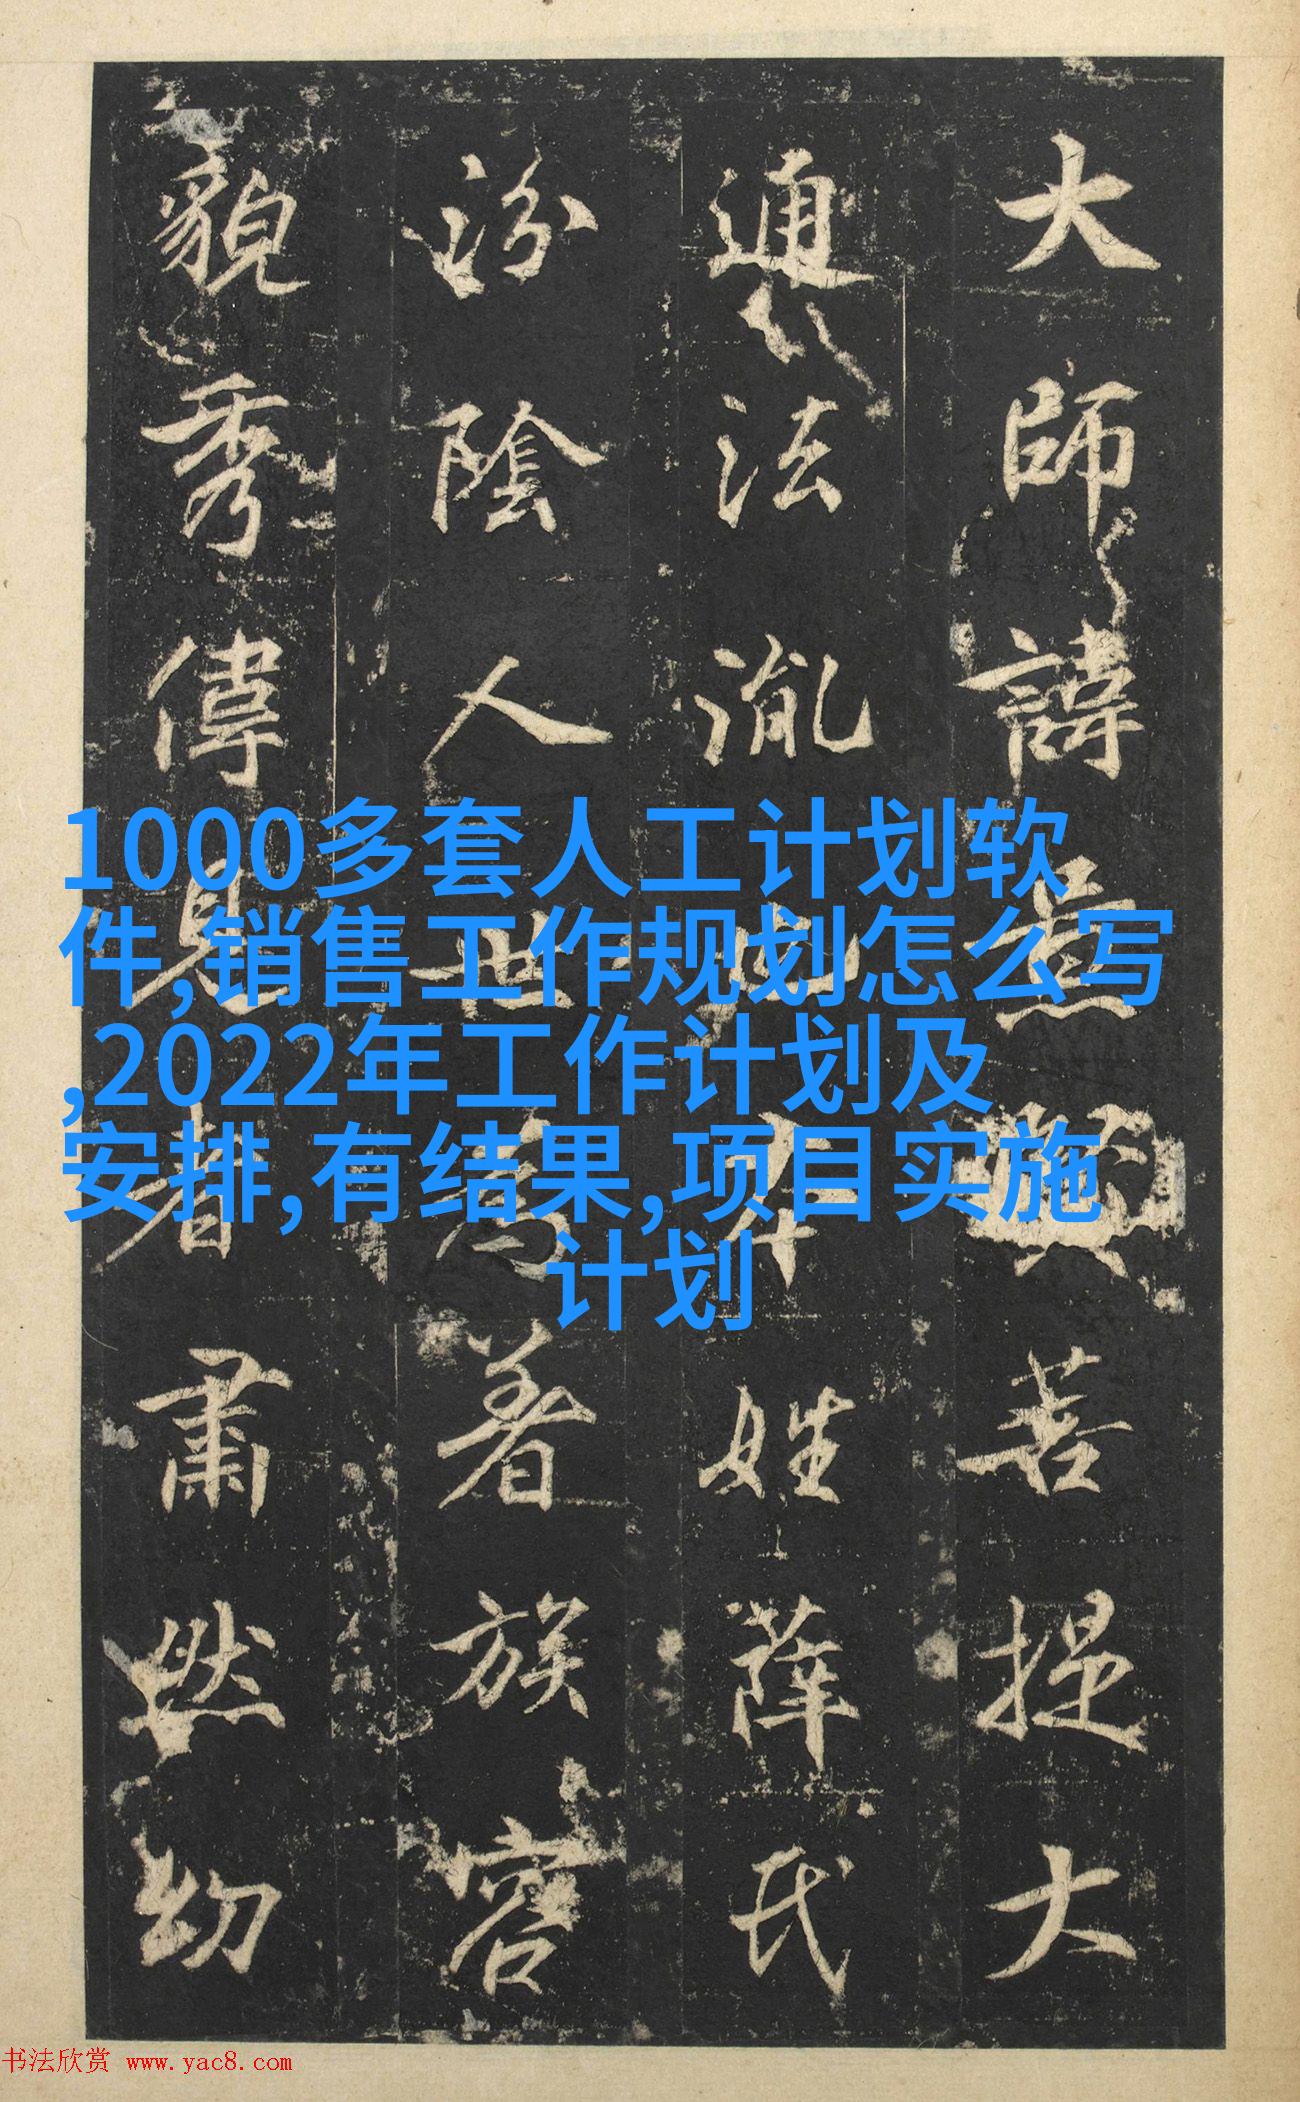 1000多套人工计划软
件,销售工作规划怎么写
,2022年工作计划及
安排,有结果,项目实施
计划
大師諱菩提大
通法姓薛氏
汾陰人世為著族容
貌秀偉見者肅然幼
书法欣赏 www.yac8.com